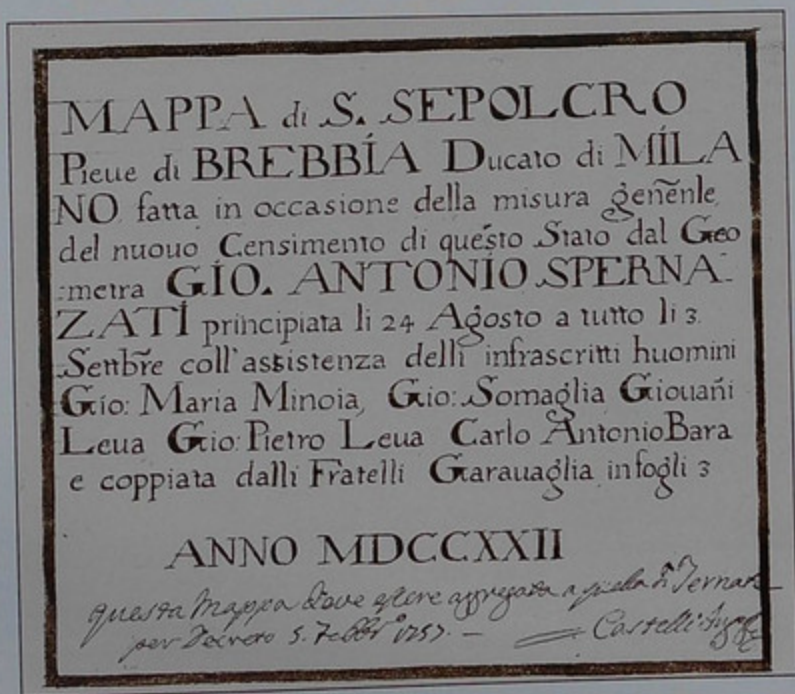 MAPPA di S. SEPOLCRO
Pieue di BREBBÍA Ducato di MÍLA
NO fatta in occasione della misura geñenle
del nuouo Censimento di questo Stato dal Geo
:metra GÍO. ANTONÍO SPERNA-
ZATÍ principiata li 24 Agosto a tutto li 3
Settb̃re coll'assistenza delli infrascritti huomini
Gío: Maria Minoia, Gio: Somaglia Giouañi
Leua Gio: Pietro Leua Carlo Antonio Bara
e coppiata dalli Fratelli Garauaglia in fogli 3
ANNO MDCCXXII
questa Mappa deve essere aggregata a quella di Ternate
per Decreto 5. Febbr.º 1757. —
Castelli